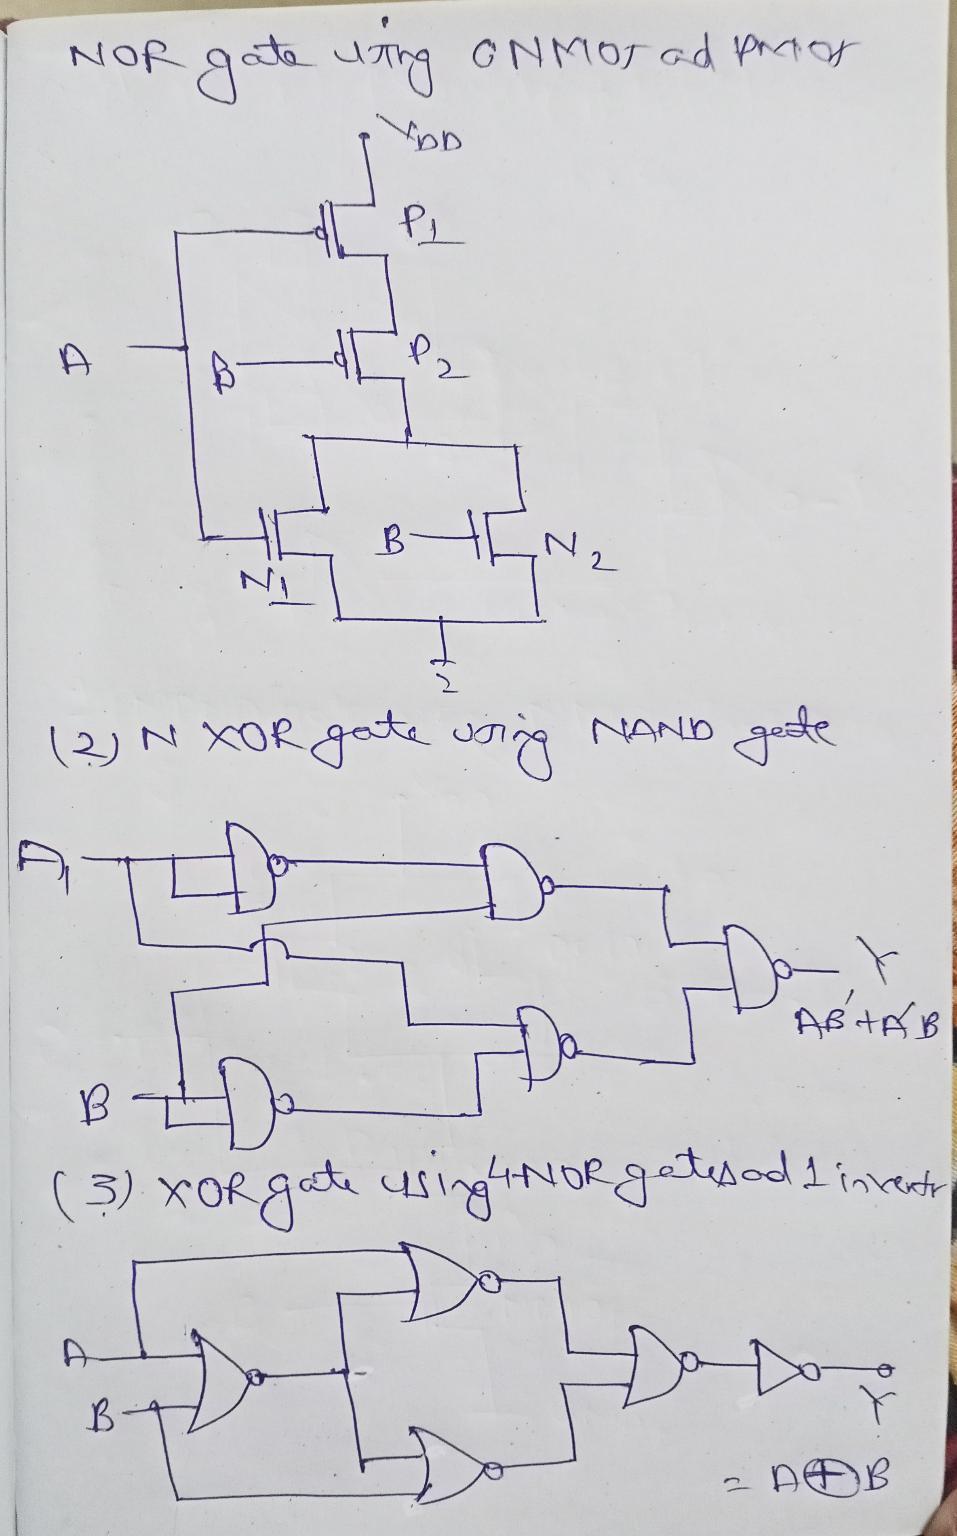 NOR gate using CNMOS ad PMOS
VDD
P1
A
B
P2
B
N2
N1
(2) N XOR gate using NAND gate
A
Y
AB'+A'B
B
(3) XOR gate using 4-NOR gates ad 1 invertr
A
B
Y
= A⊕B